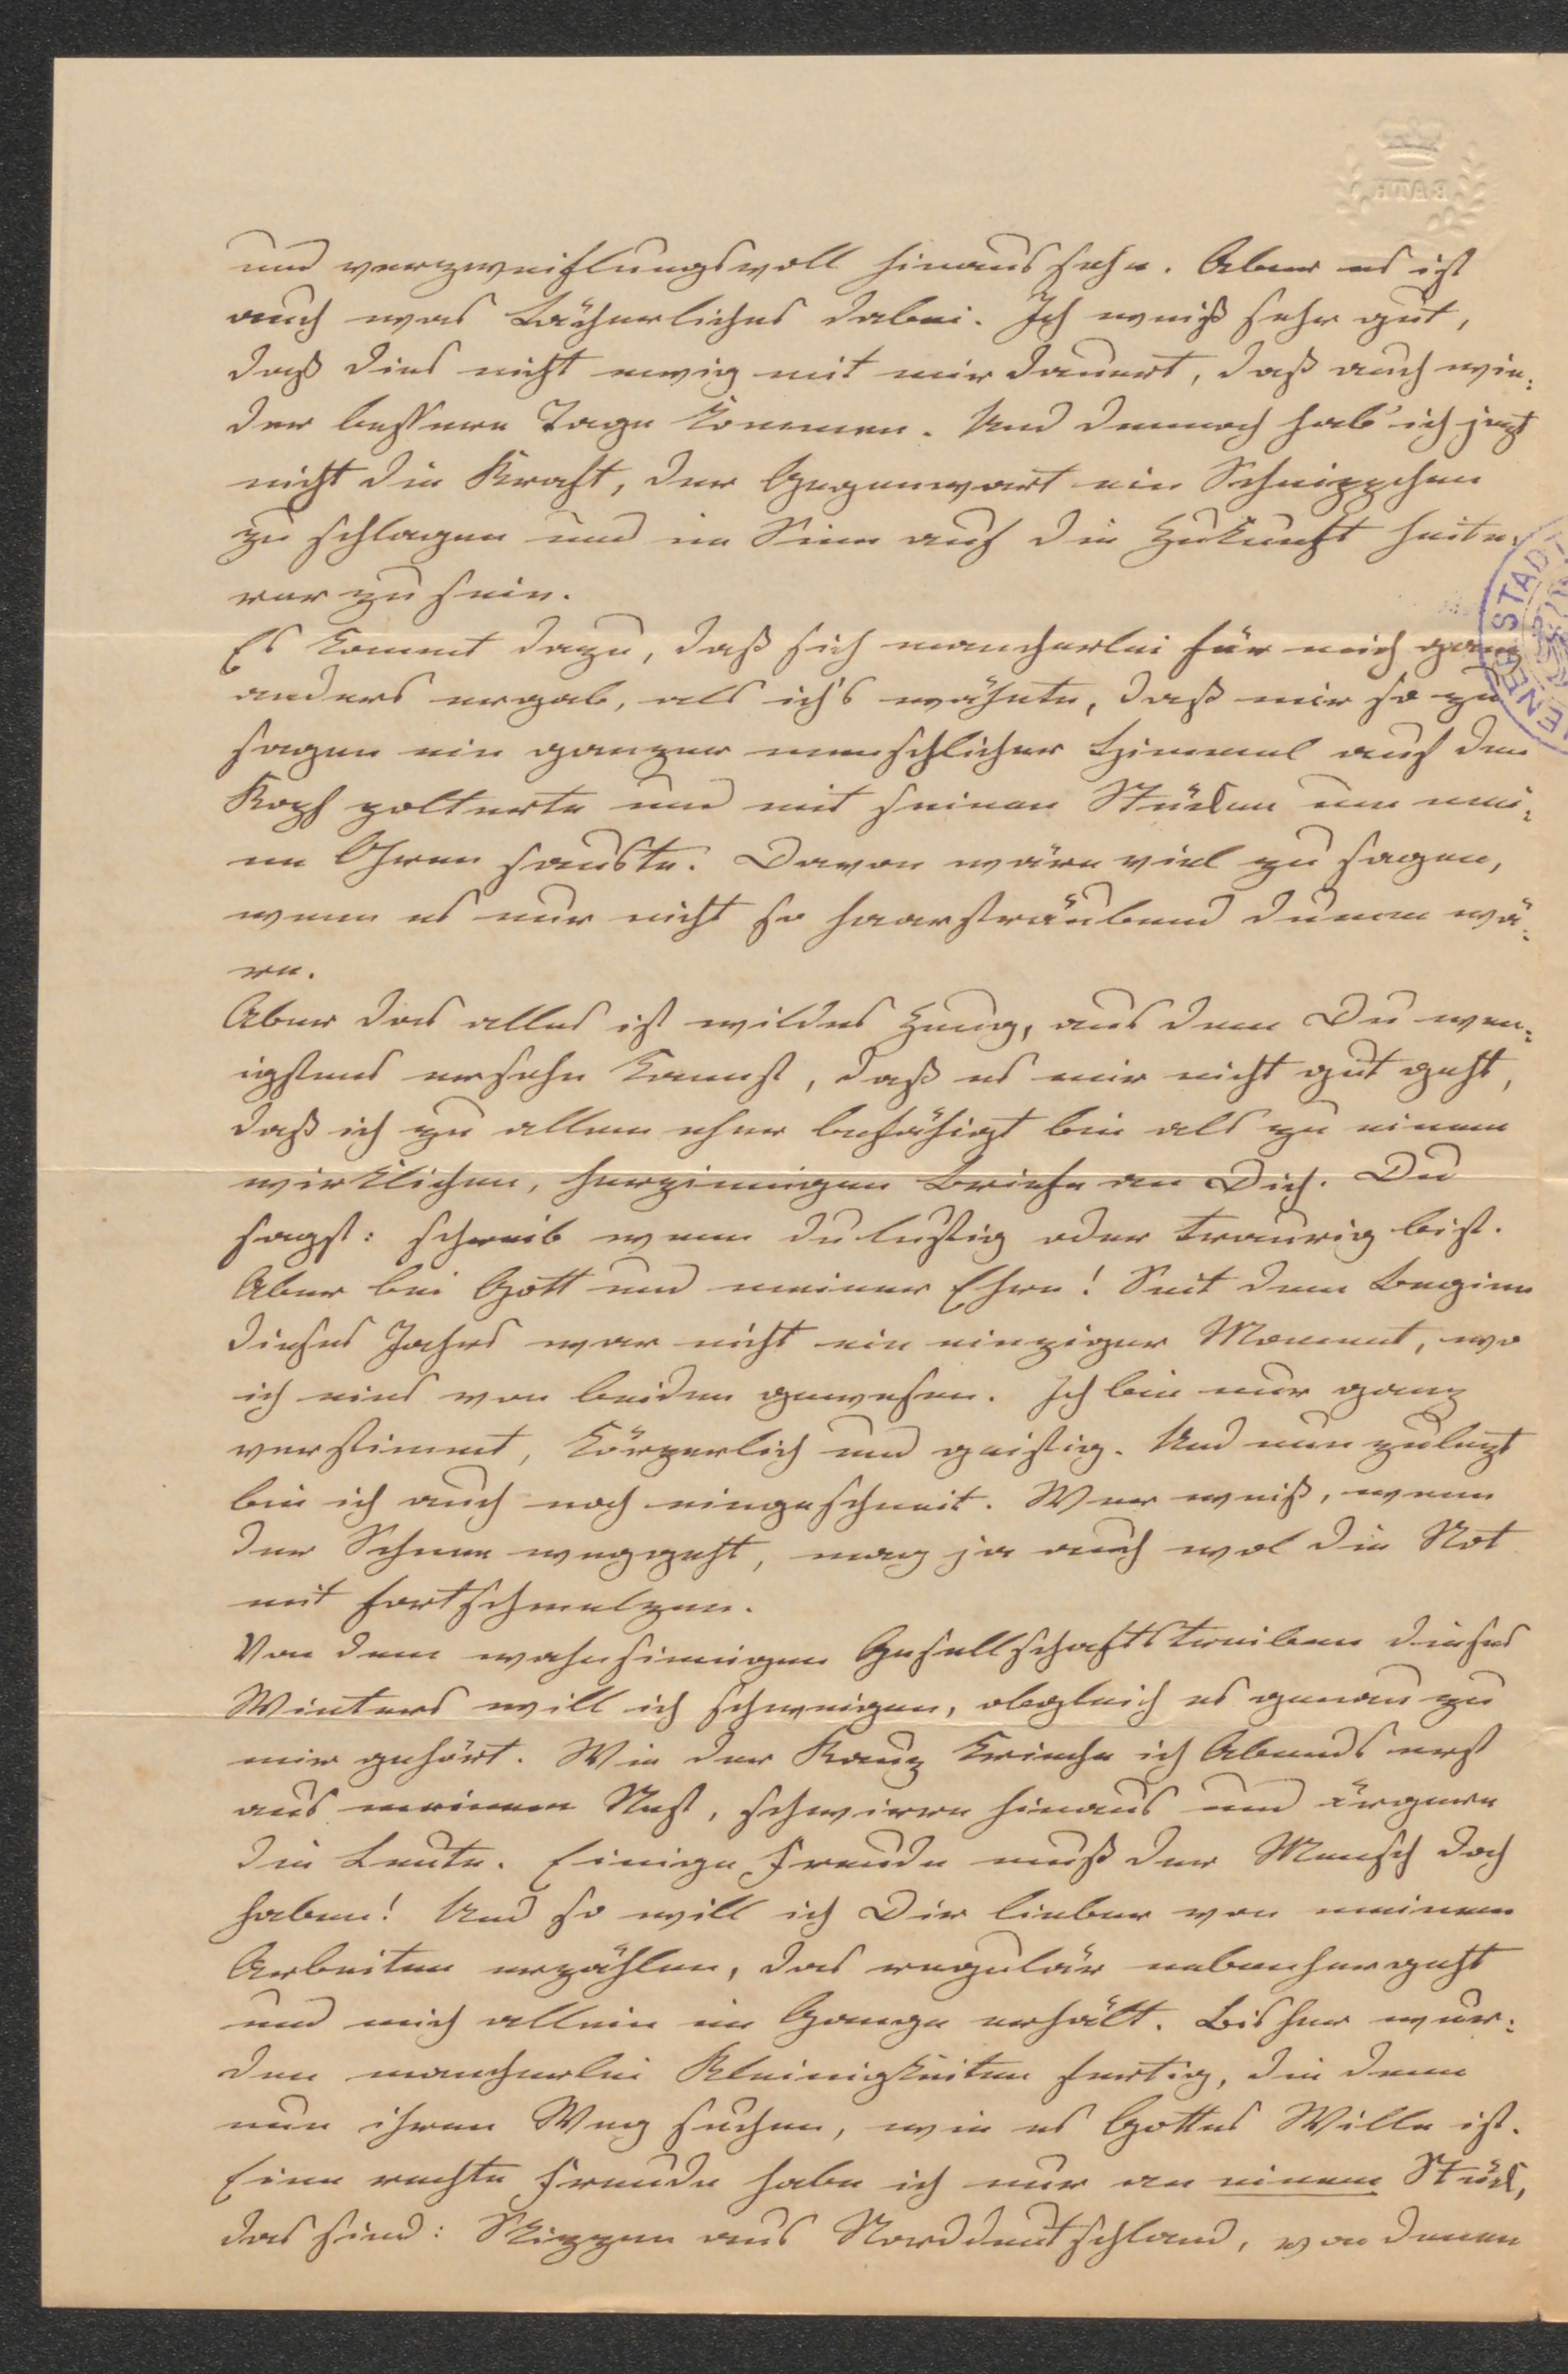 BATH
und verzweiflungsvoll hinaus sehe. Aber es ist
auch was Lächerliches dabei. Ich weiß sehr gut,
daß dies nicht ewig mit mir dauert, daß auch wie-
der bessere Tage kommen. Und dennoch hab' ich jezt
nicht die Kraft, der Gegenwart ein Schnippchen
zu schlagen und im Sinn auf die Zukunft heite-
rer zu sein.
Es kommt dazu, daß sich mancherlei für mich ganz
anders ergab, als ich's wähnte, daß mir so zu
sagen ein ganzer menschlicher Himmel auf den
Kopf polterte und mit seinen Stücken um mei-
ne Ohren sauste. Davon wäre viel zu sagen,
wenn es nur nicht so haarsträubend dumm wä-
re.
Aber das alles ist wildes Zeug, aus dem Du wen-
igstens ersehn kannst, daß es mir nicht gut geht,
daß ich zu allem eher befähigt bin als zu einem
wirklichen, herzinnigen Briefe an Dich. Du
sagst: schreib wenn du lustig oder traurig bist.
Aber bei Gott und meiner Ehre! Seit dem Beginn
dieses Jahres war nicht ein einziger Moment, wo
ich eins von beiden gewesen. Ich bin nur ganz
verstimmt, körperlich und geistig. Und nun zulezt
bin ich auch noch eingeschneit. Wer weiß, wenn
der Schnee weggeht, mag ja auch wol die Not
mit fortschmelzen.
Von dem wahnsinnigen Gesellschaftstreiben dieses
Winters will ich schweigen, obgleich es genau zu
mir gehört. Wie der Kauz krieche ich Abends erst
aus meinem Nest, schwirre hinaus und ärgere
die Leute. Einige Freude muß der Mensch doch
haben! Und so will ich Dir lieber von meinem
Arbeiten erzählen, das regulär nebenher geht
und mich allein im Gange erhält. Bisher wur-
den mancherlei Kleinigkeiten fertig, die denn
nun ihren Weg suchen, wie es Gottes Wille ist.
Eine rechte Freude habe ich nur an einem Stück,
das sind: Skizzen aus Norddeutschland, von denen